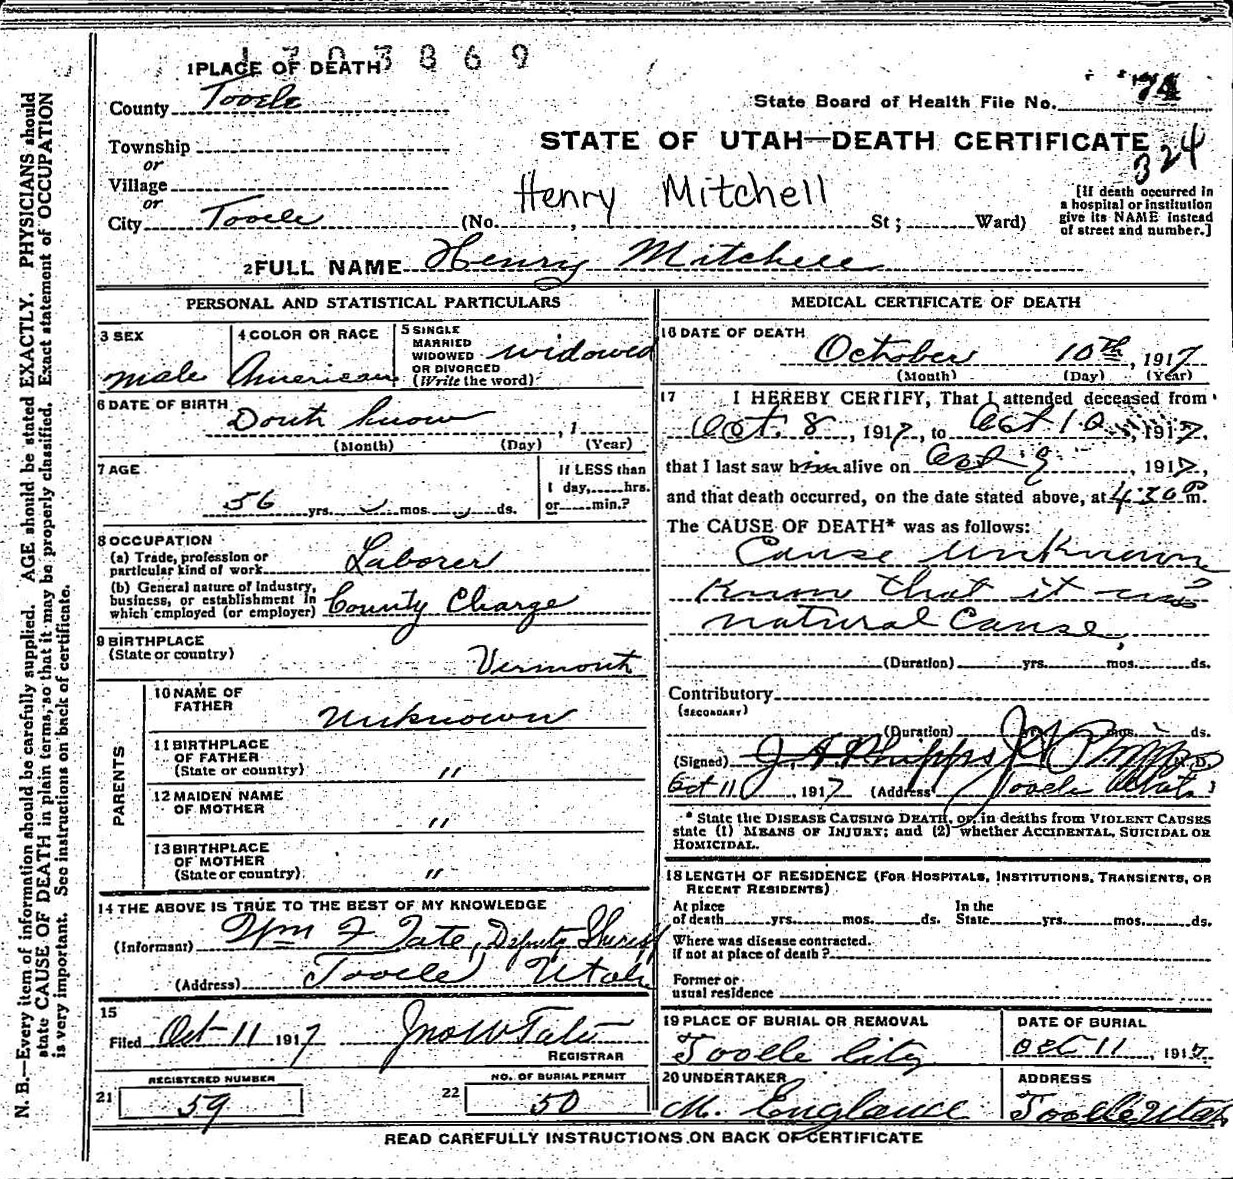 1703869
1 PLACE OF DEATH
County Tooele
State Board of Health File No. 74
Township
STATE OF UTAH—DEATH CERTIFICATE
324
or
Village
or
City Tooele (No. , St ; Ward)
Henry Mitchell
[If death occurred in
a hospital or institution
give its NAME instead
of street and number.]
2 FULL NAME Henry Mitchell
PERSONAL AND STATISTICAL PARTICULARS
3 SEX
male
4 COLOR OR RACE
American
5 SINGLE
MARRIED
WIDOWED
OR DIVORCED
(Write the word)
widowed
6 DATE OF BIRTH
Dont know , 1
(Month) (Day) (Year)
7 AGE
56 yrs. mos. ds.
If LESS than
1 day, hrs.
or min.?
8 OCCUPATION
(a) Trade, profession or
particular kind of work Laborer
(b) General nature of industry,
business, or establishment in
which employed (or employer) County Charge
9 BIRTHPLACE
(State or country)
Vermont
PARENTS
10 NAME OF
FATHER
Unknown
11 BIRTHPLACE
OF FATHER
(State or country) "
12 MAIDEN NAME
OF MOTHER
"
13 BIRTHPLACE
OF MOTHER
(State or country) "
14 THE ABOVE IS TRUE TO THE BEST OF MY KNOWLEDGE
(Informant) Wm F Tate, Deputy Sheriff
(Address) Tooele Utah
15
Filed Oct-11 1917 Jno W Tate
REGISTRAR
REGISTERED NUMBER
21 59
NO. OF BURIAL PERMIT
22 50
MEDICAL CERTIFICATE OF DEATH
16 DATE OF DEATH
October 10th, 1917
(Month) (Day) (Year)
17 I HEREBY CERTIFY, That I attended deceased from
Oct. 8, 1917, to Oct 10, 1917,
that I last saw him alive on Oct 9, 1917,
and that death occurred, on the date stated above, at 4:30 P m.
The CAUSE OF DEATH* was as follows:
Cause unknown
Know that it was
natural Cause,
(Duration) yrs. mos. ds.
Contributory
(SECONDARY)
(Duration) yrs. mos. ds.
(Signed) J A Phipps J A Phipps M. D.
Oct 11, 1917 (Address) Tooele Utah
* State the DISEASE CAUSING DEATH, or, in deaths from VIOLENT CAUSES
state (1) MEANS OF INJURY; and (2) whether ACCIDENTAL, SUICIDAL OR
HOMICIDAL.
18 LENGTH OF RESIDENCE (FOR HOSPITALS, INSTITUTIONS, TRANSIENTS, OR
RECENT RESIDENTS)
At place
of death yrs. mos. ds.
In the
State yrs. mos. ds.
Where was disease contracted.
if not at place of death?
Former or
usual residence
19 PLACE OF BURIAL OR REMOVAL
Tooele City
DATE OF BURIAL
Oct 11, 1917
20 UNDERTAKER
M. England
ADDRESS
Tooele Utah
READ CAREFULLY INSTRUCTIONS ON BACK OF CERTIFICATE
N. B.—Every item of information should be carefully supplied. AGE should be stated EXACTLY. PHYSICIANS should
state CAUSE OF DEATH in plain terms, so that it may be properly classified. Exact statement of OCCUPATION
is very important. See instructions on back of certificate.